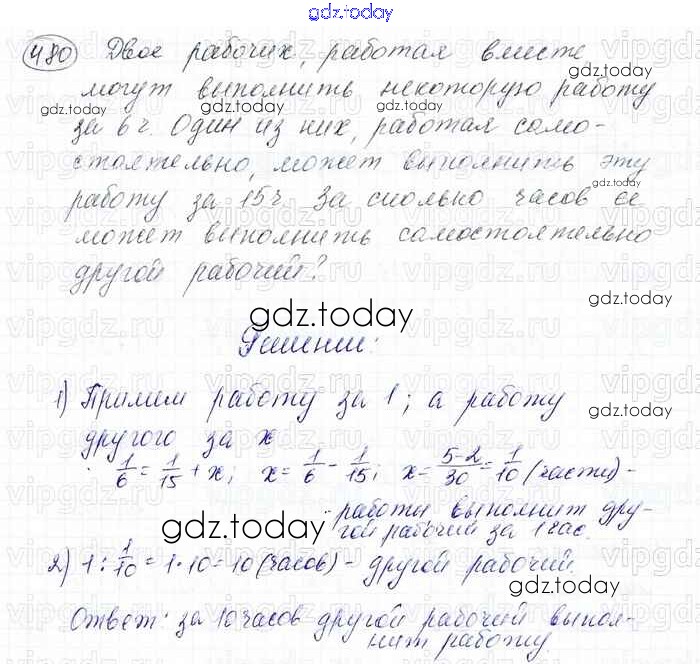 gdz.today
480 Двое рабочих, работая вместе
могут выполнить некоторую работу
за 6 ч. Один из них, работая само-
стоятельно, может выполнить эту
работу за 15ч За сколько часов её
может выполнить самостоятельно
другой рабочий?
gdz.today
Решение:
1) Примем работу за 1; а работу
другого за x
1/6 = 1/15 + x; x = 1/6 - 1/15; x = 5-2/30 = 1/10 (части) -
работы выполнит дру-
гой рабочий за 1 час.
gdz.today
2) 1 : 1/10 = 1·10 = 10 (часов) - другой рабочий.
Ответ: за 10 часов другой рабочий выпол-
нит работу.